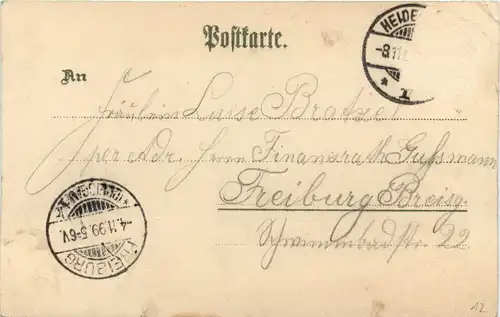 Postkarte.
HEIDE
-8.11.
* 1
An
Fräulein Luise Bratzel
per Adr. Herrn Finanzrath Gussmann
Freiburg Breisg.
Schwimmbadstr. 22
* (BREISGAU) *
-4.11.99.5-6V.
FREIBURG
12